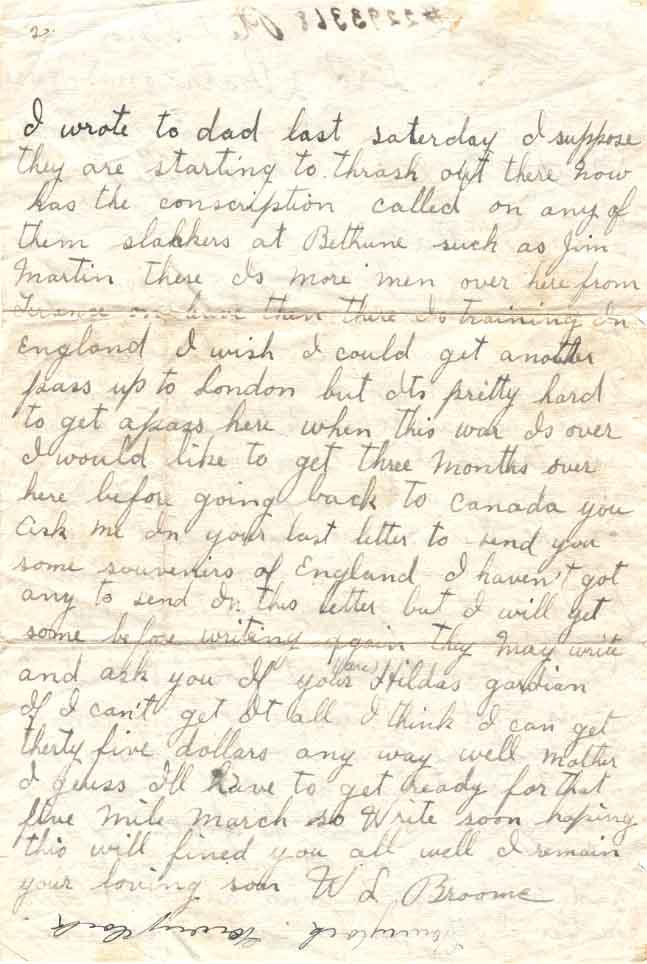 2
#2293368
I wrote to dad last saterday I suppose
they are starting to thrash out there now
has the conscription called on any of
them slakkers at Bethune such as Jim
Martin there Is more men over here from
France on leave then there Is training In
England I wish I could get another
pass up to London but Its pretty hard
to get a pass here when this war Is over
I would like to get three months over
here before going back to Canada you
ask me In your last letter to send you
some souvenirs of England I haven't got
any to send In this letter but I will get
some before writing again they may write
and ask you If your (are) Hildas gardian
If I can't get It all I think I can get
therty five dollars any way well mother
I geuss Ill have to get ready for that
five mile march so Write soon hoping
this will fined you all well I remain
your loving son W L Broome